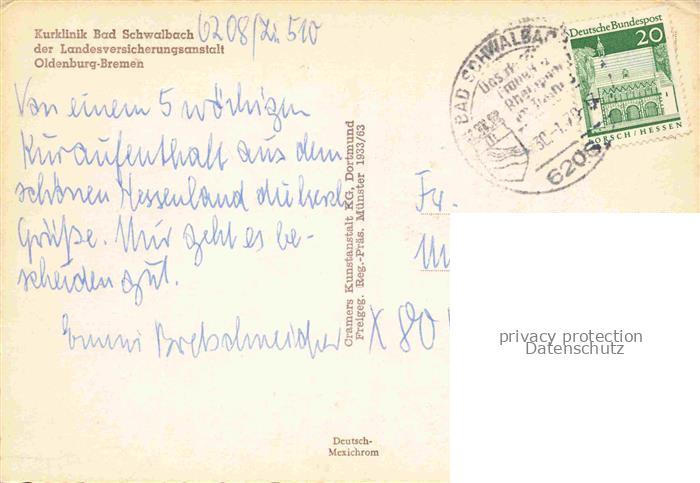 Kurklinik Bad Schwalbach
der Landesversicherungsanstalt
Oldenburg-Bremen
6208/Zi. 510
BAD SCHWALBACH
30.-1.70
6208
Deutsche Bundespost
20
LORSCH/HESSEN
Von einem 5 wöchigen
Kuraufenthalt aus dem
schönen Hessenland die herzl.
Grüße. Mir geht es be-
scheiden gut.
Emmi Bretschneider
Cramers Kunstanstalt KG, Dortmund
Freigeg. Reg.-Präs. Münster 1933/63
Fr.
X 80
privacy protection
Datenschutz
Deutsch-
Mexichrom